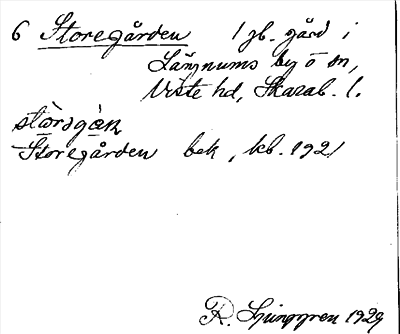 6 Storegården 1 jb. gård i
Långnums by o sn,
Viste hd, Skarab. l.
Storegården bek, kb. 1921
R. Ljunggren 1929